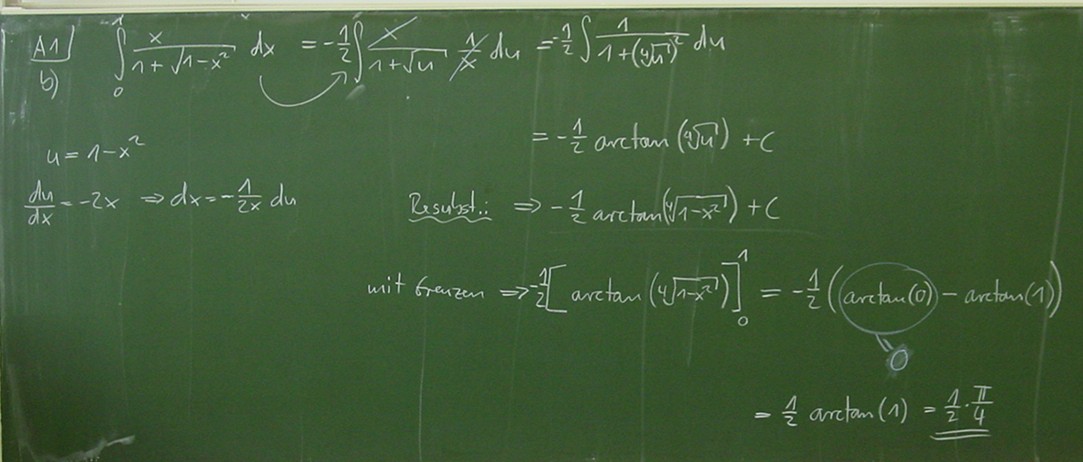 A1 b) ∫₀¹ x/(1+√(1-x²)) dx = -1/2 ∫ x/(1+√u) 1/x du = -1/2 ∫ 1/(1+(∜u)²) du
u = 1-x²
= -1/2 arctan(∜u) + C
du/dx = -2x ⇒ dx = -1/2x du
Resubst.: ⇒ -1/2 arctan(∜(1-x²)) + C
mit Grenzen ⇒ -1/2 [arctan(∜(1-x²))]₀¹ = -1/2 (arctan(0) - arctan(1))
0
= 1/2 arctan(1) = 1/2 · π/4